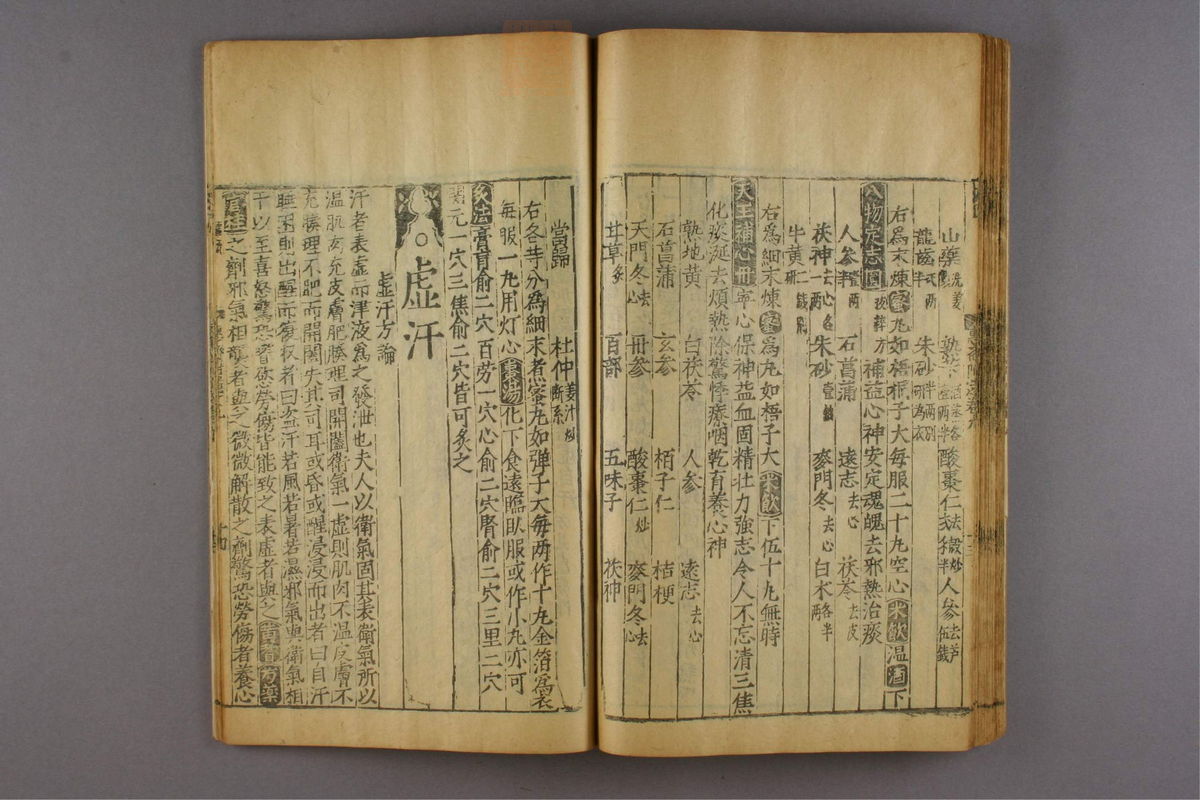 山藥 洗姜 熟下 酸棗仁 去殼炒 人參 去芦 伍錢
龍齒 弍兩半 朱砂 半兩 研為衣
右為末煉蜜丸如梧桐子大每服二十九空心米飲温酒下
八物定志圓 補益心神安定魂魄去邪熱治痰
人參 壹兩半 石菖蒲 遠志 去心 茯苓 去皮
茯神 去心各一兩 朱砂 壹錢 麥門冬 去心 白朮 各半兩
牛黄 二錢 研
右為細末煉蜜為丸如梧子大米飲下伍十丸無時
天王補心丹 寧心保神益血固精壯力強志令人不忘清三焦
化痰涎去煩熱除驚悸療咽乾育養心神
熟地黄 白茯苓 人參 遠志 去心
石菖蒲 玄參 栢子仁 桔梗
天門冬 去心 丹參 酸棗仁 炒 麥門冬 去心
甘草 炙 百部 五味子 茯神
當歸 杜仲 姜汁炒斷系
右各等分為細末煉蜜丸如弹子大每两作十丸金箔為衣
每服一丸用灯心棗湯化下食遠臨臥服或作小丸亦可
灸法 膏肓俞二穴百劳一穴心俞二穴腎俞二穴三里二穴
関元一穴三焦俞二穴皆可灸之
虛汗
虚汗方論
汗者表虚而津液為之發泄也夫人以衛氣固其表衛氣所以
温肌肉充皮膚肥腠理司開闔衛氣一虛則肌肉不温皮膚不
充腠理不肥而開闔失其司耳或昏或醒浸浸而出者曰自汗
睡困則出醒而復收者曰盗汗若風若暑若濕邪氣與衛氣相
干以至喜怒驚恐嗜慾勞傷皆能致之表虛者與之黄蓍芍薬
官桂之劑邪氣相襲者與之微微解散之劑驚恐勞傷者養心